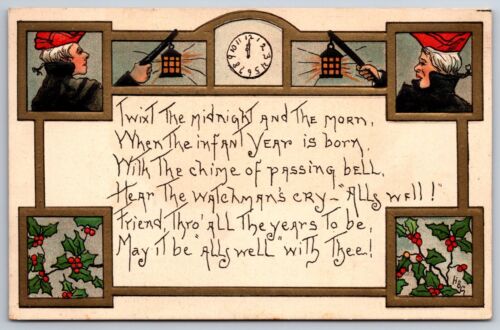 10 11 12 1 2 3 4 5 6 7 8 9
Twixt The midnight and The morn,
When The infant Year is born,
With The chime of passing bell,
Hear The Watchman's cry - "Alls well!"
Friend, Thro' all The years To be,
May it be alls well" with Thee!
HBG